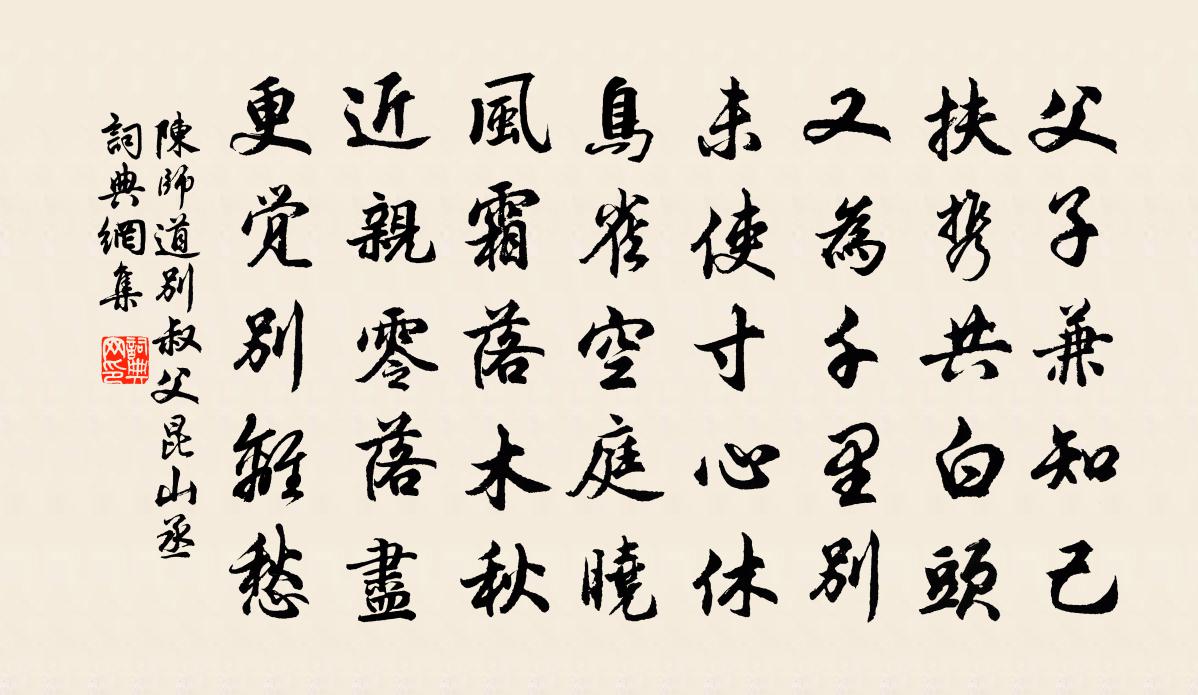 父子兼知己
扶携共白頭
又為千里別
未使寸心休
鳥雀空庭曉
風霜落木秋
近親零落盡
更覚別離愁
陳師道別叔父昆山丞
詞典網集
詞典
网印